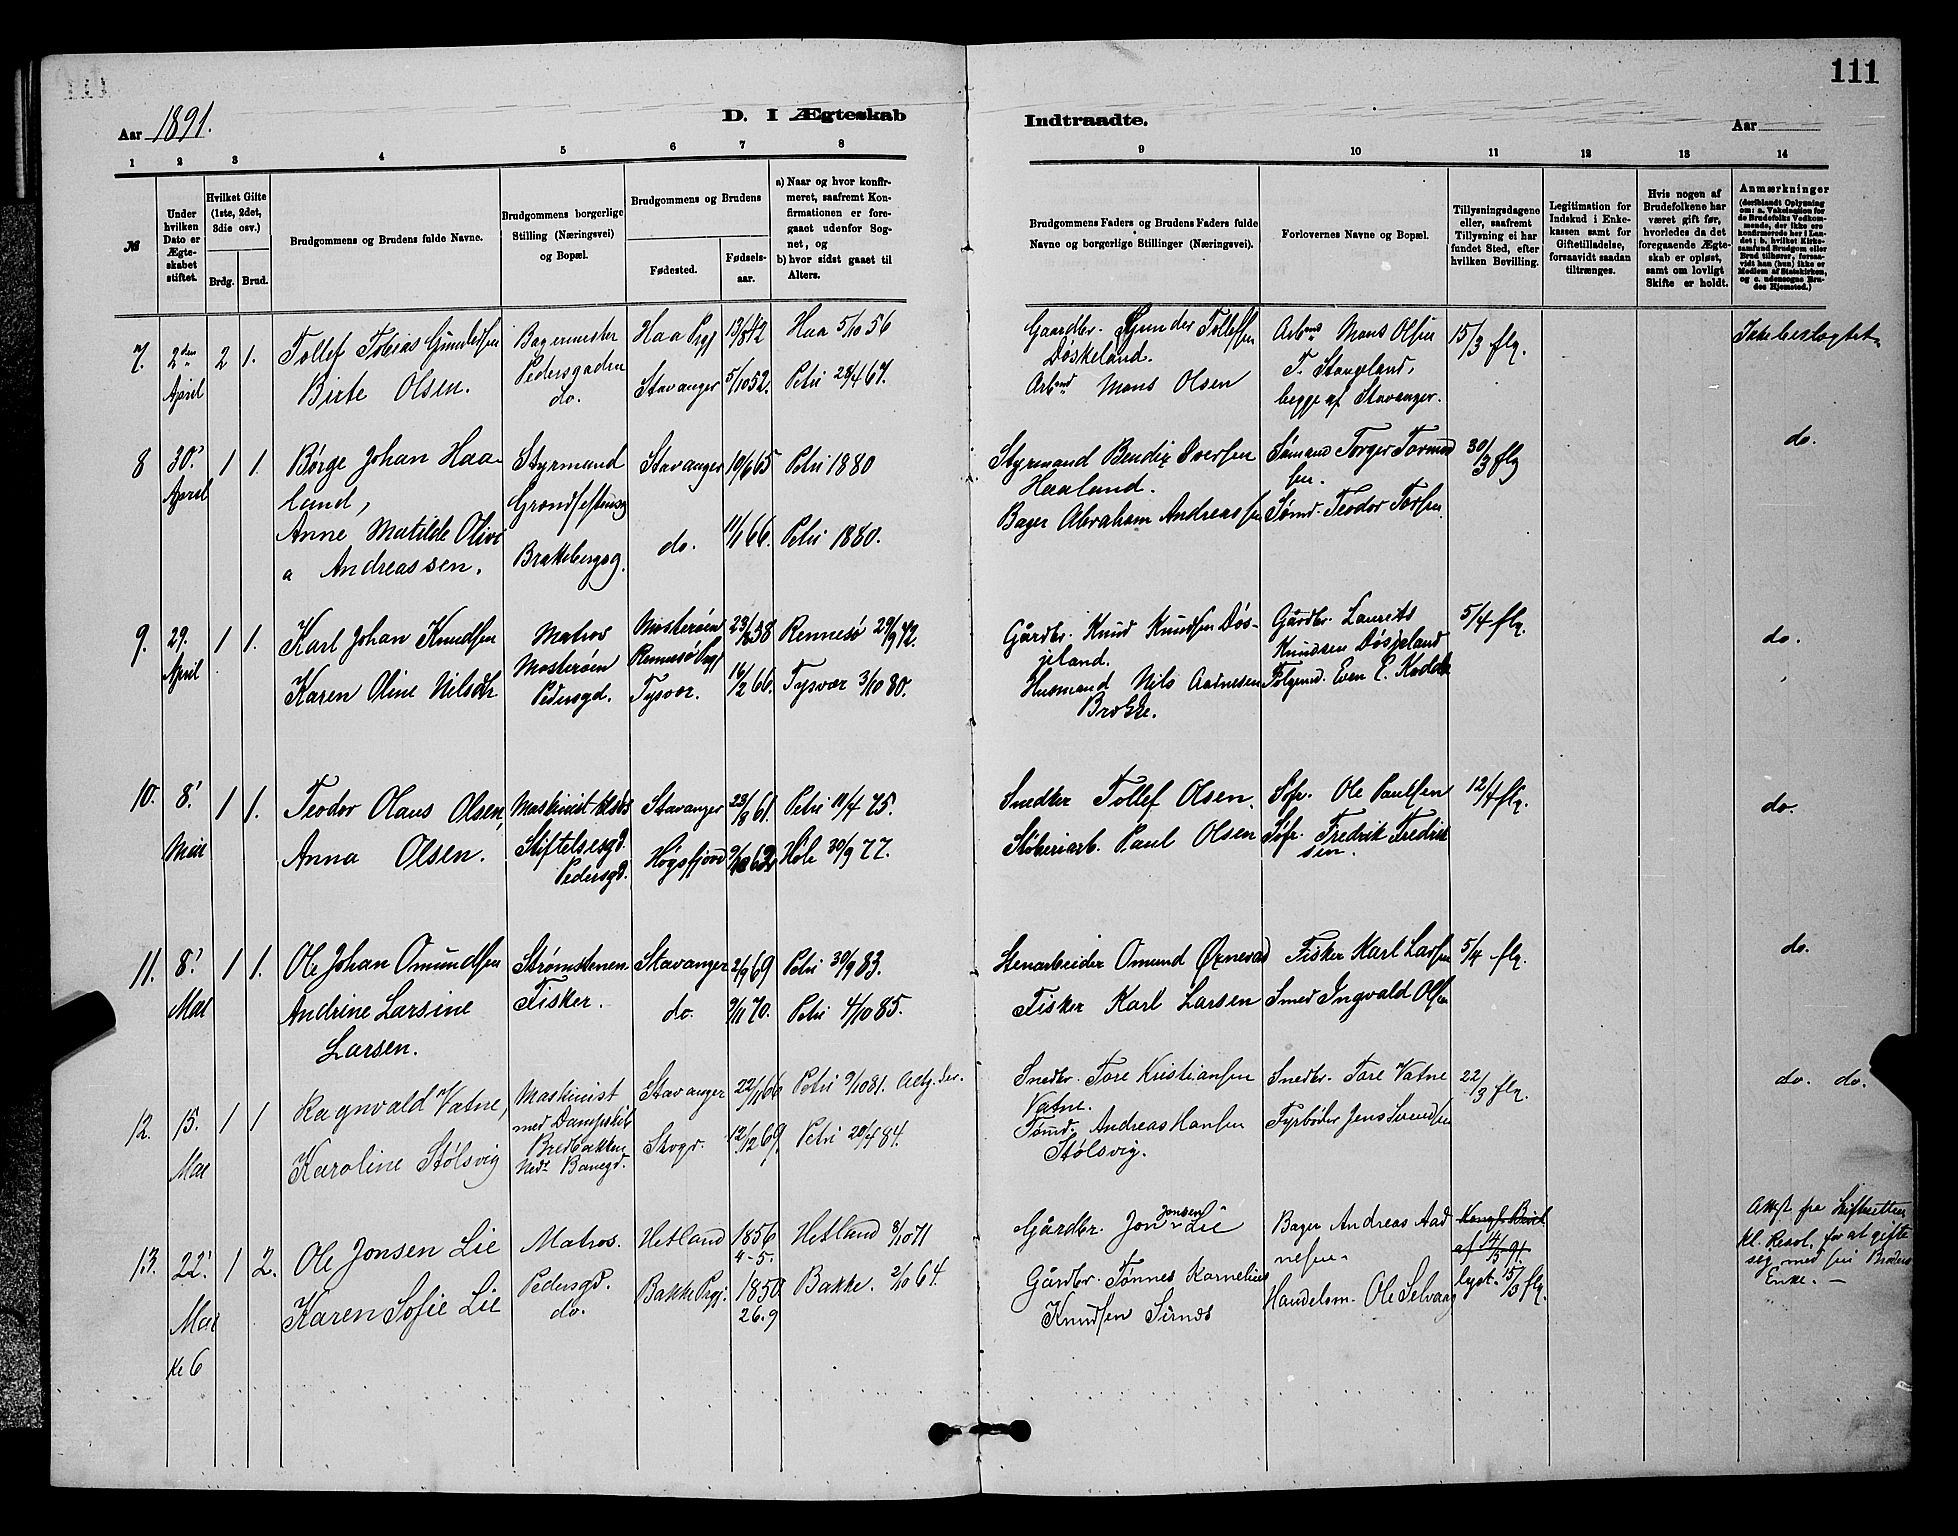 111
Aar 1891.
D. I Ægteskab
Indtraadte.
Aar
1 2 3 4 5 6 7 8 9 10 11 12 13 14
№
Under hvilken Dato er Ægteskabet stiftet.
Hvilket Gifte (1ste, 2det, 3die osv.)
Brdg. Brud.
Brudgommens og Brudens fulde Navne.
Brudgommens borgerlige Stilling (Næringsvei) og Bopæl.
Brudgommens og Brudens
Fødested.
Fødselsaar.
a) Naar og hvor konfirmeret, saafremt Konfirmationen er foregaaet udenfor Sognet, og
b) hvor sidst gaaet til Alters.
Brudgommens Faders og Brudens Faders fulde Navne og borgerlige Stillinger (Næringsvei).
Forlovernes Navne og Bopæl.
Tillysningsdagene eller, saafremt Tillysning ei har fundet Sted, efter hvilken Bevilling.
Legitimation for Indskud i Enkekassen samt for Giftetilladelse, forsaavidt saadan tiltrænges.
Hvis nogen af Brudefolkene har været gift før, hvorledes da det foregaaende Ægteskab er opløst, samt om lovligt Skifte er holdt.
Anmærkninger (deriblandt Oplysning om: a. Vaksination for de Brudefolks Vedkommende, der ikke ere konfirmerede her i Landet; b. hvilket Kirkesamfund Brudgom eller Brud tilhører, forsaavidt han (hun) ikke er Medlem af Statskirken, og c. udensogns Brudes Hjemsted.)
7. 2den April 2 1.
Tollef Tobias Gundersen
Birte Olsen.
Bagermester
Pedersgaden
do.
Haa Prgj 13/8 42 Haa 5/10 56
Stavanger 5/10 52. Petri 28/4 67.
Gaardbr. Gunder Tollefsen
Døskeland.
Arbmd Mons Olsen
Arbmd Mons Olsen
T. Stangeland,
begge af Stavanger.
15/3 flg.
Ikke beslægtet.
8 30' April 1 1.
Børge Johan Haaland,
Anne Matilde Olivia Andreassen.
Styrmand
Brakebergsg.
Stavanger 10/6 65 Petri 1880
do. 11/1 66. Petri 1880.
Styrmand Bendix Iversen
Haaland.
Bager Abraham Andreassen
Sømand Torger Tormodsen.
Sømd. Teodor Torsen
30/3 flg
do.
9. 29. April 1 1.
Karl Johan Knudsen
Karen Oline Nilsdtr
Matros
Mosterøen
Pedersgd.
Mosterøen
Rennesø Prgj
Tysvær.
Rennesø 29/9 72.
16/2 66. Tysvær 3/10 80.
Gårdbr. Knud Knudsen Døsjeland.
Husmand Nils Aanensen
Brokke.
Gårdbr. Laurits
Knudsen Døsjeland
Følgemd. Even E.
5/4 flg.
do.
10. 8' Mai 1 1.
Teodor Olaus Olsen,
Anna Olsen.
Maskinist
Stiftelsesgd.
Pedersgd.
Stavanger 23/8 61. Petri 11/4 75.
Høgsfjord Høle 30/9 77.
Snedker Tollef Olsen.
Støberiarb. Paul Olsen
Søfr. Ole Paulsen
Søfr. Fredrik Fredriksen.
12/4 flg.
do.
11. 8' Mai 1 1.
Ole Johan Omundsen
Andrine Larsine
Larsen.
Strømstenen
Fisker.
Stavanger 2/9 69 Petri 30/9 83.
do. 9/11 70. Petri 4/10 85.
Stenarbeider Omund Ørnevad
Fisker Karl Larsen
Fisker Karl Larsen
Smed Ingvald Olsen
5/4 flg.
do.
12. 15. Mai 1 1
Ragnvald Vatne,
Karoline Stølsvig
Maskinist
med Dampskib
Bredbakken
Nedr Banegd.
Stavanger 22/11 66 Petri 9/10 81.
Skogd. 12/12 69. Petri 20/4 84.
Snedkr. Tore Kristiansen
Vatne.
Tømd. Andreas Hansen
Stølsvig.
Snedkr. Tore Vatne
Fyrbøder Jens Svendsen
22/3 flg.
do. do.
13. 22' Mai kl 6 1 2.
Ole Jonsen Lie
Karen Sofie Lie
Matros.
Pedersgd.
do.
Hetland 1856 4-5. Hetland 8/10 71
Bakke Prgj. 1850 26.9 Bakke. 2/10 64.
Gårdbr. Jon Jonsen Lie
Gårdbr. Tønnes Kornelius
Knudsen Sirnes
Bager Andreas Aadnesen
Handelsm. Ole Selvaag
Kongl. Bevil
af 14/5 91.
lyst. 15/3 flg.
Attst fra Stiftsretten
kl. Resol. for at gifte
seg med sin Broders
Enke. —